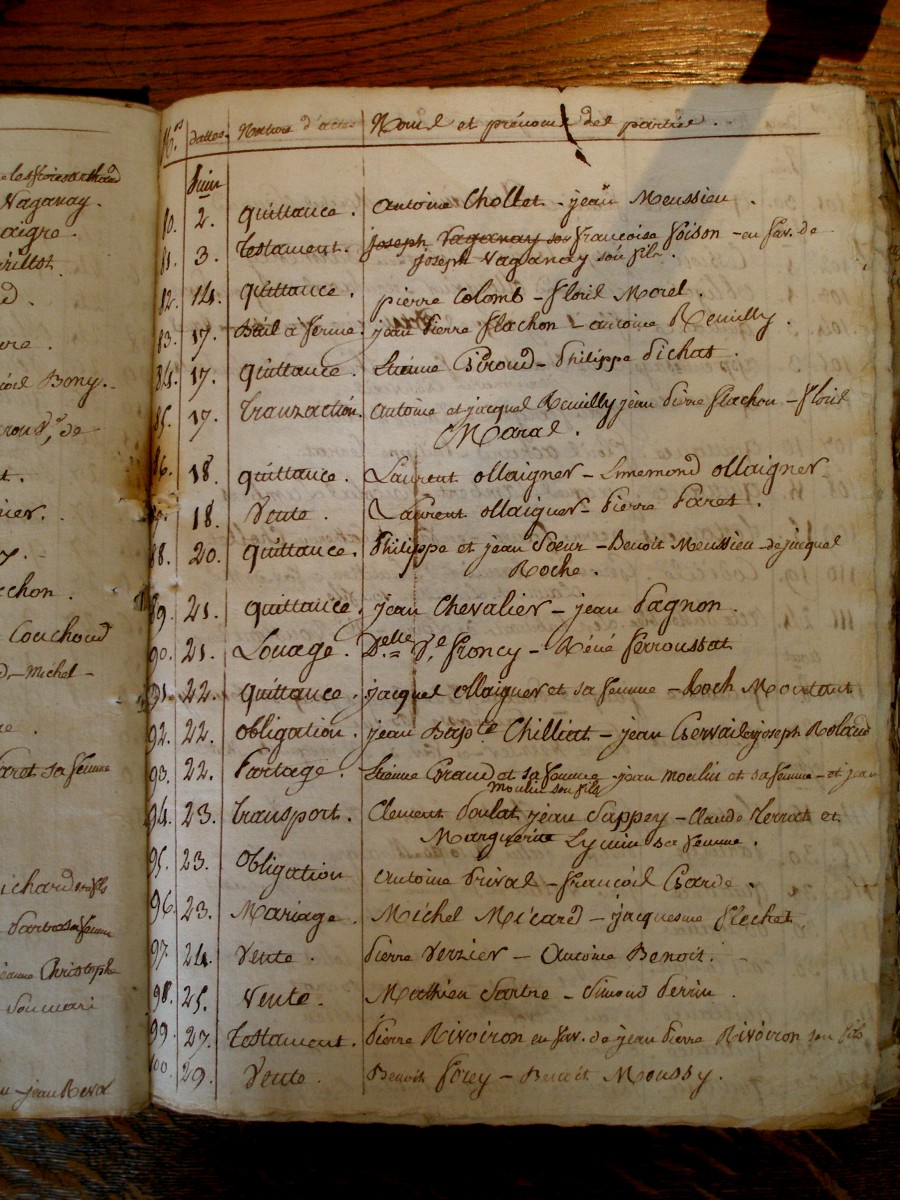 N.os dattes. Nature d'actes Noms et prénoms des parties.
Juin
80. 2. quittance. antoine Chollet - jean Meussieu.
81. 3. testament. joseph Vaganay son francoise foison - en fav. de
joseph Vaganay son fils.
82. 14. quittance. pierre Colomb - floris Morel.
83. 17. Bail à ferme. jean pierre flachon - antoine Reuilly.
84. 17. quittance. Etienne Giroud - philippe pichat.
85. 17. tranzaction. antoine et jacques Reuilly jean pierre flachon - floris
Maral.
86. 18. quittance. Laurent ollaigner - Ennemond ollaigner
18. Vente. Laurent ollaigner - Pierre paret.
88. 20. quittance. Philippe et jean Soeur - Benoit Meussieu - de jacques
Roche.
89. 21. quittance. jean Chevalier - jean pagnon.
90. 21. Louage. Delle Ve froncy - Réné ferroussat
91. 22. quittance. jacques ollaigner et sa femme - Roch Moutant
92. 22. obligation. jean Bapte Chilliat - jean Gervais joseph Rolaud
93. 22. Partage. Etienne Giraud et sa femme - jean moulin et sa femme - et jean
moulin son fils
94. 23. transport. Clement poulat jean Sappey - Claude terrat et
Marguerite Lymin sa femme.
95. 23. obligation antoine prival - francois Garde.
96. 23. Mariage. Michel Micard - jacquesme flechet
97. 24. Vente. pierre Verzier - antoine Benoit.
98. 25. Vente. Mathieu Sartre - Simond perrin.
99. 27. testament. pierre Rivoiron en fav. de jean pierre Rivoiron son fils
100. 29. Vente. Benoit forey - Benoit Moussy.
Vaganay.
aigre.
Bony.
de
chon.
Couchoud
Michel -
et sa femme
Christophe
jean Reval